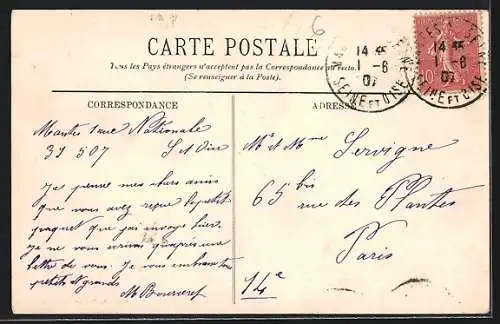 6
CARTE POSTALE
Tous les Pays étrangers n'acceptent pas la Correspondance au recto.
(Se renseigner à la Poste).
14
1-6
07
SEINE ET OISE
14
1-6
07
SEINE ET OISE
10
CORRESPONDANCE
ADRESSE
Mantes 1 rue Nationale
31 5 07 S et Oise
Je pense mes chers amis
que vous avez reçu le petit
paquet que j'ai envoyé hier.
Je ne vous écrivai qu'après une
lettre de vous. Je vous embrasse tous
petits et grands
M
Mr et Mme Servigne
65 bis
rue des Plantes
Paris
14e